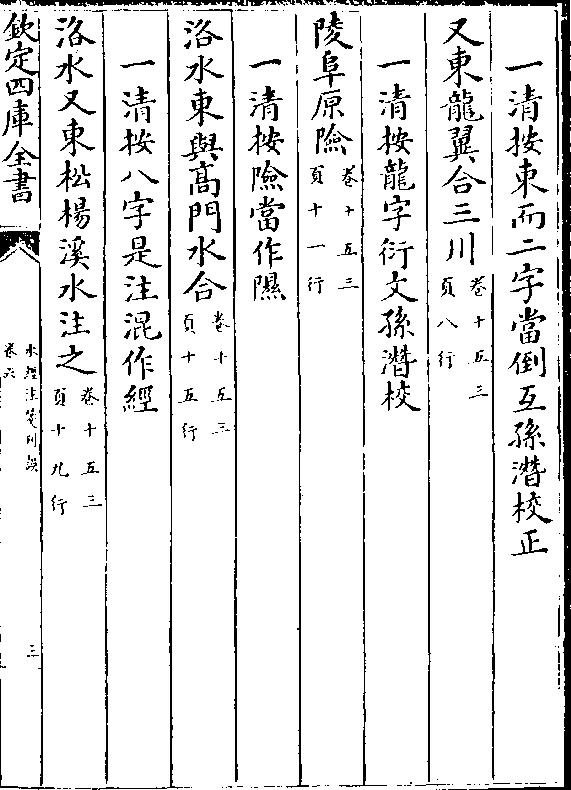 一清按東而二字當倒互孫潛校正
又東龍翼合三川卷十五三頁八行
一清按龍字衍文孫潛校
陵阜原險卷十五三頁十一行
一清按險當作隰
洛水東與髙門水合卷十五三頁十五行
一清按八字是注混作經
洛水又東松楊溪水注之卷十五三頁十九行
欽定四庫全書
水經注箋刋誤
卷六
三